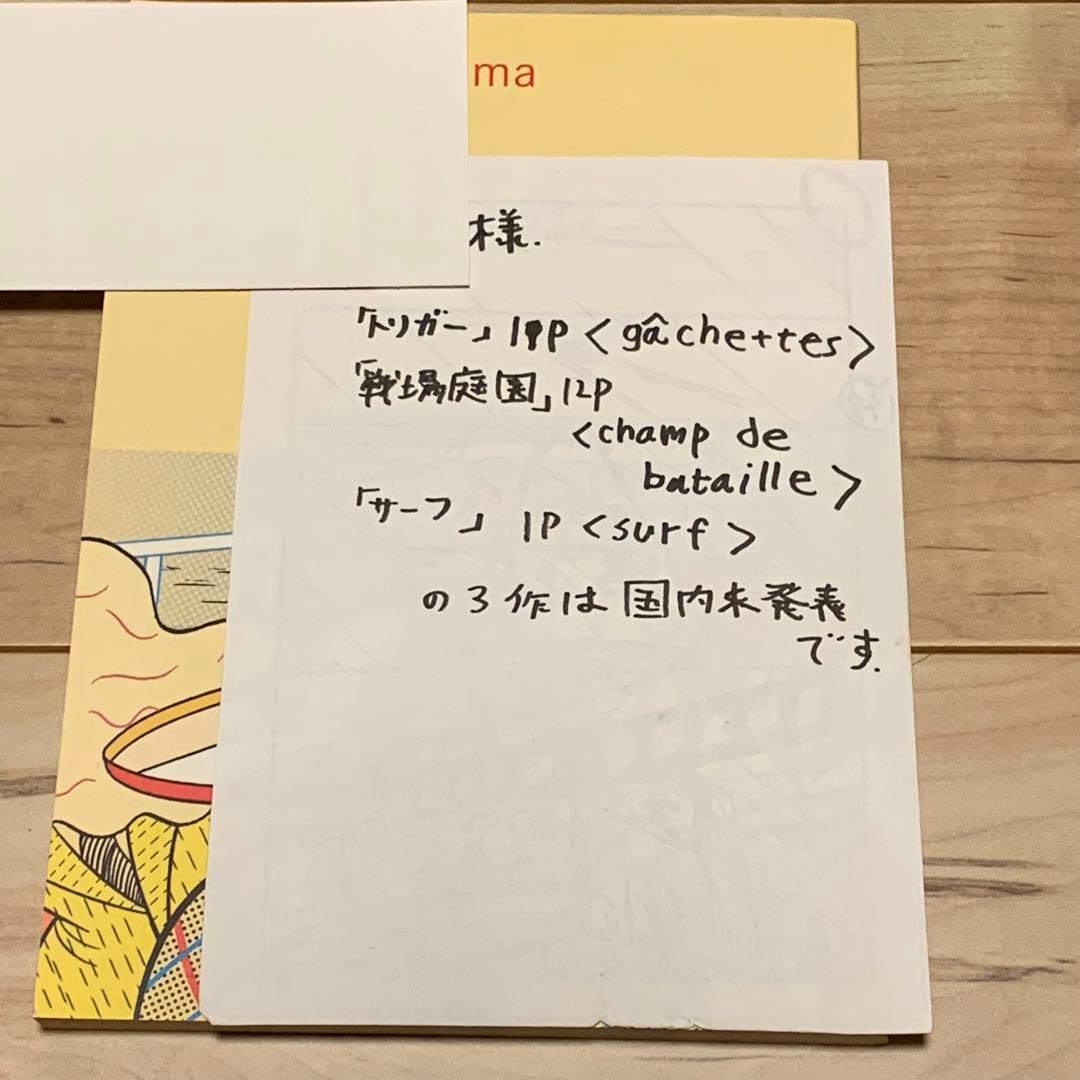 ma
様.
「トリガー」11P <gâchettes>
「戦場庭園」12P
<champ de
bataille>
「サーフ」 1P <surf>
の3作は国内未発表
です.